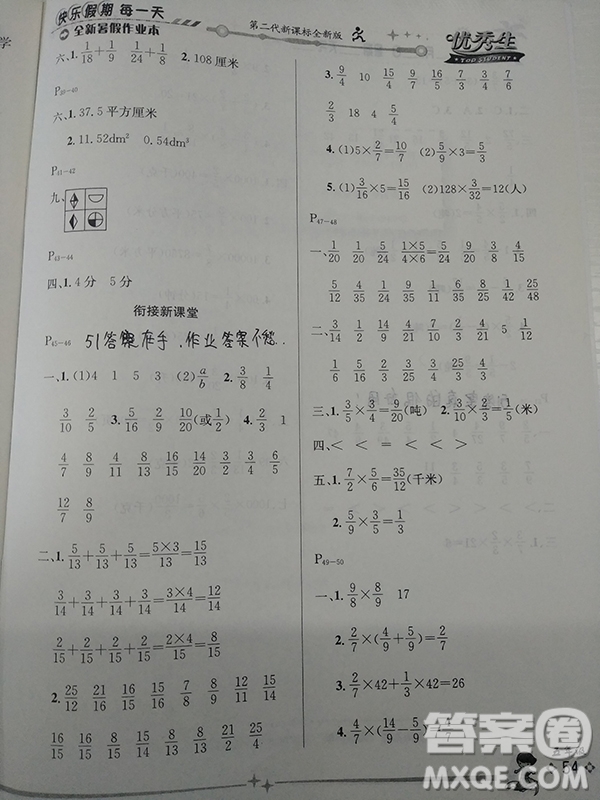 快乐假期 每一天
全新暑假作业本
第二代新课标全新版
优秀生
TOP STUDENT
学
六、1. 1/18 + 1/9 1/24 + 1/8 2. 108厘米
P39-40
六、1. 37.5平方厘米
2. 11.52dm² 0.54dm³
P41-42
九、
P43-44
四、1. 4分 5分
衔接新课堂
P45-46 51答案在手，作业答案不愁..
一、1. (1)4 1 5 3 (2) a/b 2. 3/8 1/4
3/10 2/5 3. 5/16 2/9 10/20(或1/2) 4. 2/3 1
4/7 8/9 4/8 4/11 8/13 14/15 14/20 3/2 4/3 6/4
12/7 8/9
二、1. 5/13+5/13+5/13=5×3/13=15/13
3/14+3/14+3/14+3/14=3×4/14=12/14
2/15+2/15+2/15+2/15=2×4/15=8/15
2. 25/12 21/16 16/15 16/7 15/8 6/7 21/25 24/13
16/15 8/15 5/8 4/9 5/8 8/9 15/16
9/4 10 15/4 2/3 7/6 3/4 7/6
2/3 18 4 5/4
4. (1)5×2/7=10/7 (2)5/9×3=5/3
5. (1)3/16×5=15/16 (2)128×3/32=12(人)
P47-48
一、1/20 5/20 1×5/4×6 5/24 9/20 3/8 4/15
5/12 8/35 4/15 2/27 4/15 8/27 9/40
二、1/10 5/6 3/14 4/21 4/21 5 1/12
1/6 5/36 6/25 3/8 3/64 25/36 8/35
三、1. 3/5×3/4=9/20(吨) 2. 3/10×2/3=1/5(米)
四、< < = < <
五、1. 7/2×5/6=35/12(千米)
2. 5/9×3/5=1/3
P49-50
一、1. 9/8×8/9 17
2. 2/7×(4/9+5/9)=2/7
3. 2/7×42+1/3×42=26
4. 2/7×(14/9-5/9)
答案圈
MXQE.COM
54